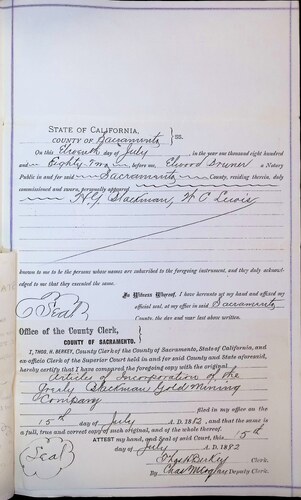 STATE OF CALIFORNIA,
COUNTY OF Sacramento } SS.
On this Eleventh day of July in the year one thousand eight hundred
and Eighty Two before me Elwood Bruner a Notary
Public in and for said Sacramento County, residing therein, duly
commissioned and sworn, personally appeared
H. G. Blackman, W C Lewis
known to me to be the persons whose names are subscribed to the foregoing instrument, and they duly acknowl-
edged to me that they executed the same.
Seal
In Witness Whereof, I have hereunto set my hand and affixed my
official seal, at my office in said Sacramento
County, the day and year last above written.
Office of the County Clerk,
COUNTY OF SACRAMENTO.
I, THOS. H. BERKEY, County Clerk of the County of Sacramento, State of California, and
ex officio Clerk of the Superior Court held in and for said County and State aforesaid,
hereby certify that I have compared the foregoing copy with the original
Articles of Incorporation of the
Blackman Gold Mining
Company
filed in my office on the
15th day of July A. D. 1882, and that the same is
a full, true and correct copy of such original, and of the whole thereof.
ATTEST my hand, and Seal of said Court, this 15th
day of July A. D. 1882
Seal
Thos H Berkey Clerk.
By Chas Deputy Clerk.